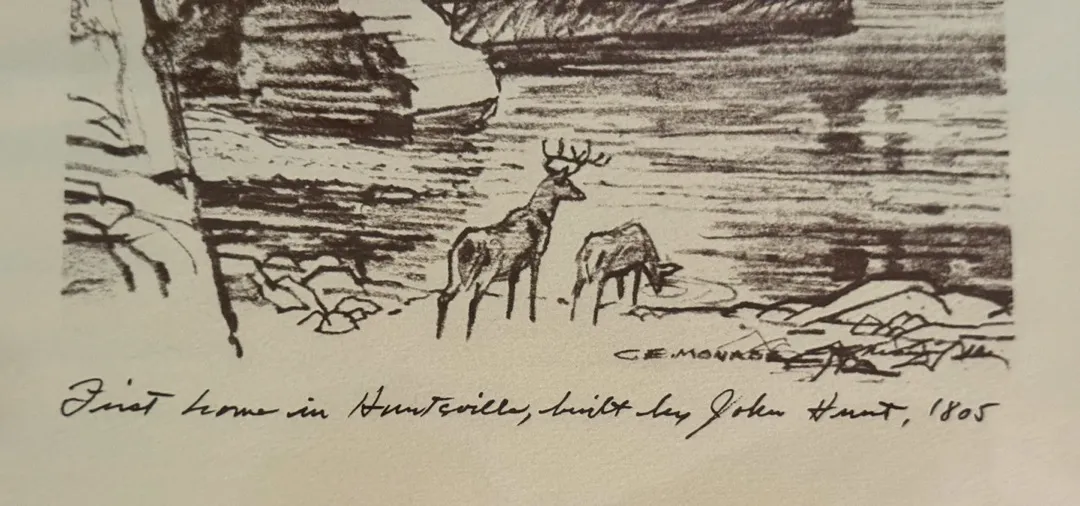 C.E. MONROE
First home in Huntsville, built by John Hunt, 1805